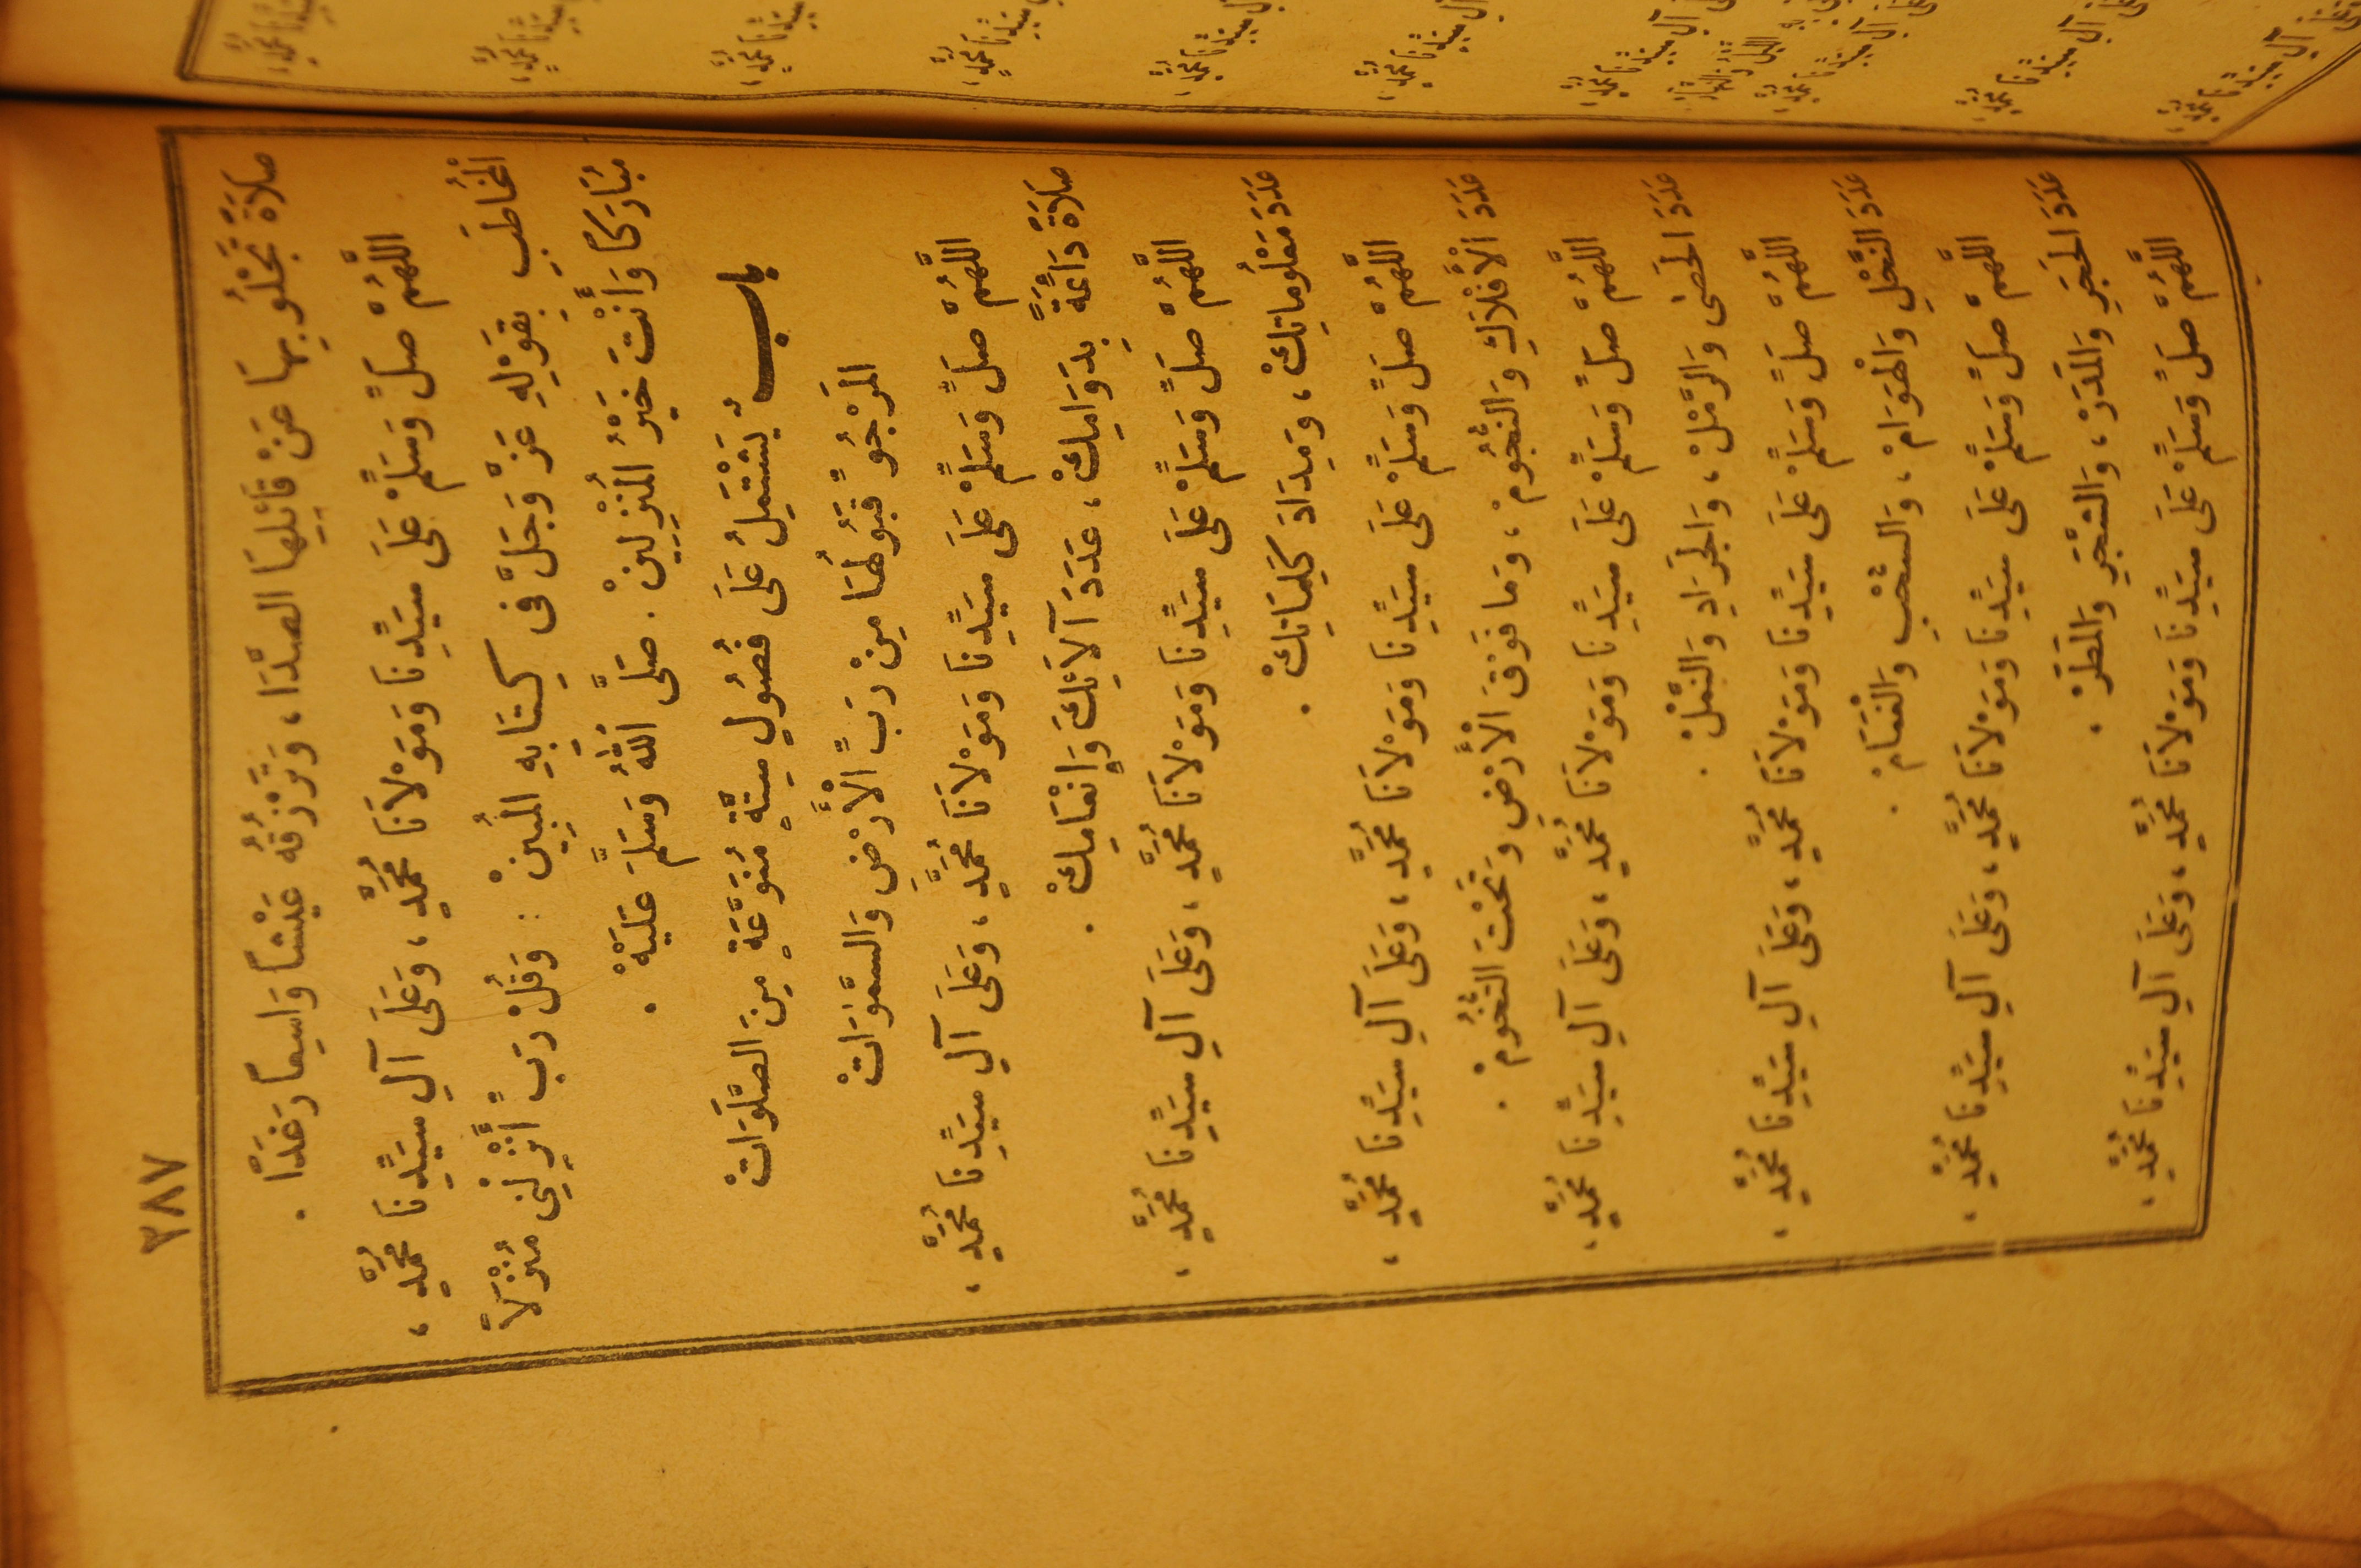 ٣٨٧
صَلَاةً تَجْلُو بِهَا عَنْ قَائِلِهَا الصَّدَا، وَتَرْزُقُهُ عَيْشًا وَاسِعًا رَغَدًا.
اللَّهُمَّ صَلِّ وَسَلِّمْ عَلَى سَيِّدِنَا وَمَوْلَانَا مُحَمَّدٍ، وَعَلَى آلِ سَيِّدِنَا مُحَمَّدٍ،
الْمُخَاطَبِ بِقَوْلِهِ عَزَّ وَجَلَّ فِى كِتَابِهِ الْمُبِينْ : وَقُلْ رَبِّ أَنْزِلْنِى مُنْزَلًا
مُبَارَكًا وَأَنْتَ خَيْرُ الْمُنْزِلِينْ. صَلَّى اللهُ وَسَلَّمَ عَلَيْهْ.
بَابٌ يَشْتَمِلُ عَلَى فُصُولٍ سِتَّةٍ مُنَوَّعَةٍ مِنَ الصَّلَوَاتْ
الْمَرْجُوِّ قَبُولُهَا مِنْ رَبِّ الْأَرْضِ وَالسَّمٰوَاتْ
اللَّهُمَّ صَلِّ وَسَلِّمْ عَلَى سَيِّدِنَا وَمَوْلَانَا مُحَمَّدٍ، وَعَلَى آلِ سَيِّدِنَا مُحَمَّدٍ،
صَلَاةً دَائِمَةً بِدَوَامِكْ، عَدَدَ آلَائِكَ وَإِنْعَامِكْ.
اللَّهُمَّ صَلِّ وَسَلِّمْ عَلَى سَيِّدِنَا وَمَوْلَانَا مُحَمَّدٍ، وَعَلَى آلِ سَيِّدِنَا مُحَمَّدٍ،
عَدَدَ مَعْلُومَاتِكْ، وَمِدَادَ كَلِمَاتِكْ.
اللَّهُمَّ صَلِّ وَسَلِّمْ عَلَى سَيِّدِنَا وَمَوْلَانَا مُحَمَّدٍ، وَعَلَى آلِ سَيِّدِنَا مُحَمَّدٍ،
عَدَدَ الْأَفْلَاكِ وَالنُّجُومْ، وَمَا فَوْقَ الْأَرْضِ وَتَحْتَ التُّخُومْ.
اللَّهُمَّ صَلِّ وَسَلِّمْ عَلَى سَيِّدِنَا وَمَوْلَانَا مُحَمَّدٍ، وَعَلَى آلِ سَيِّدِنَا مُحَمَّدٍ،
عَدَدَ الْحَصَى وَالرَّمْلْ، وَالْجَرَادِ وَالنَّمْلْ.
اللَّهُمَّ صَلِّ وَسَلِّمْ عَلَى سَيِّدِنَا وَمَوْلَانَا مُحَمَّدٍ، وَعَلَى آلِ سَيِّدِنَا مُحَمَّدٍ،
عَدَدَ النَّحْلِ وَالْهَوَامْ، وَالسُّحْبِ وَالْغَمَامْ.
اللَّهُمَّ صَلِّ وَسَلِّمْ عَلَى سَيِّدِنَا وَمَوْلَانَا مُحَمَّدٍ، وَعَلَى آلِ سَيِّدِنَا مُحَمَّدٍ،
عَدَدَ الْحَجَرِ وَالْمَدَرْ، وَالشَّجَرِ وَالْمَطَرْ.
اللَّهُمَّ صَلِّ وَسَلِّمْ عَلَى سَيِّدِنَا وَمَوْلَانَا مُحَمَّدٍ، وَعَلَى آلِ سَيِّدِنَا مُحَمَّدٍ،